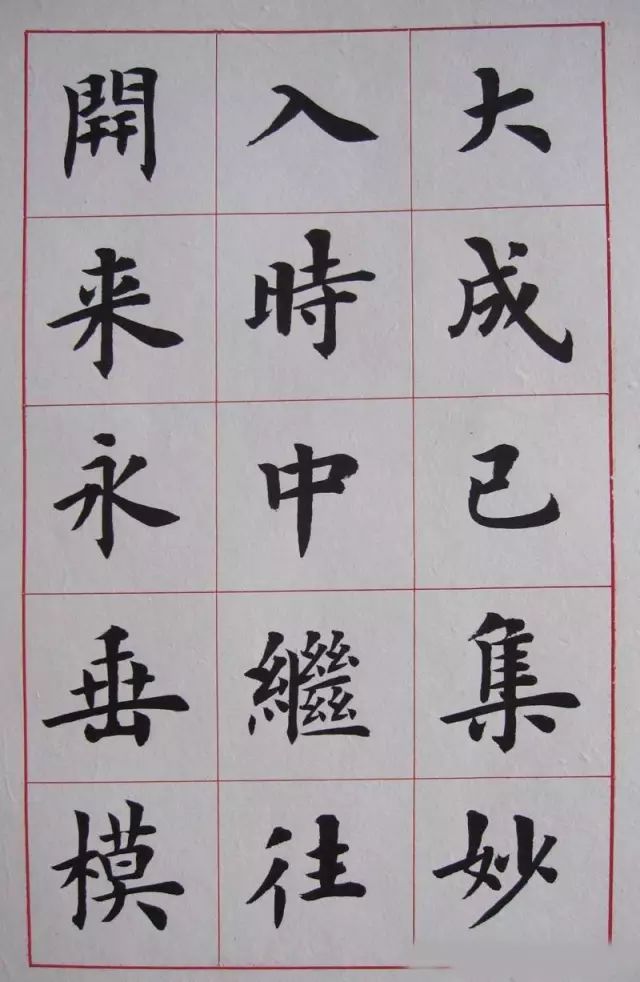 大成已集妙
入時中繼往
開来永垂模